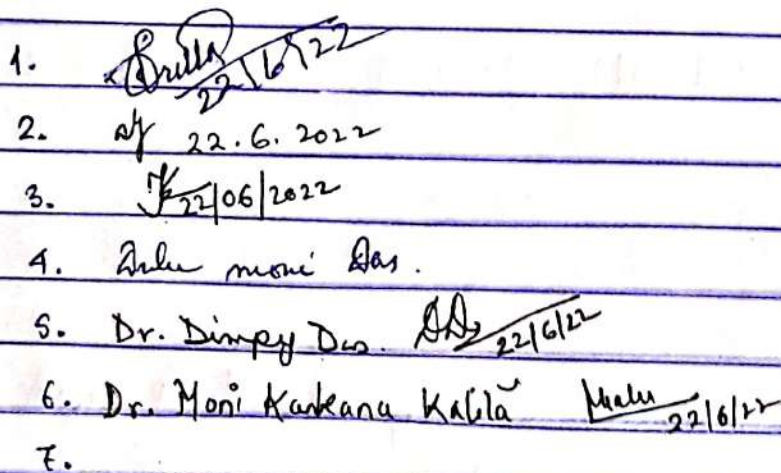 1. 22/6/22
2. 22.6.2022
3. 22/06/2022
4. Dulu moni Das.
5. Dr. Dimpy Das. 22/6/22
6. Dr. Moni Kankana Kalita 22/6/22
7.